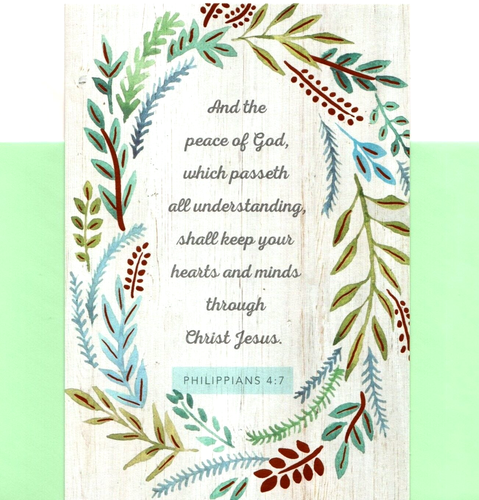 And the
peace of God,
which passeth
all understanding,
shall keep your
hearts and minds
through
Christ Jesus.
PHILIPPIANS 4:7